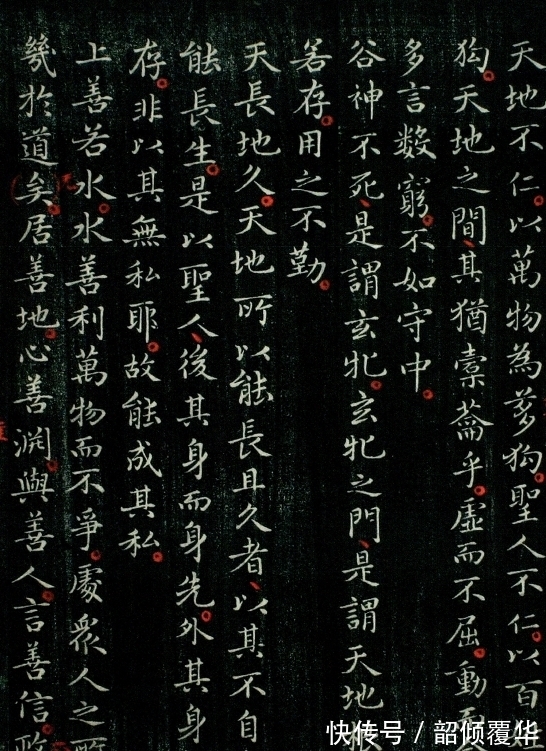 天地不仁。以萬物為芻狗。聖人不仁。以百姓
狗。天地之間、其猶橐籥乎。虛而不屈。動而
多言數窮。不如守中。
谷神不死、是謂玄牝。玄牝之門、是謂天地
若存。用之不勤。
天長地久。天地所以能長且久者、以其不自
能長生。是以聖人、後其身而身先。外其身
存。非以其無私耶。故能成其私。
上善若水。水善利萬物而不爭。處衆人之所
幾於道矣。居善地。心善淵。與善人。言善信。政
快传号 / 韶倾覆华